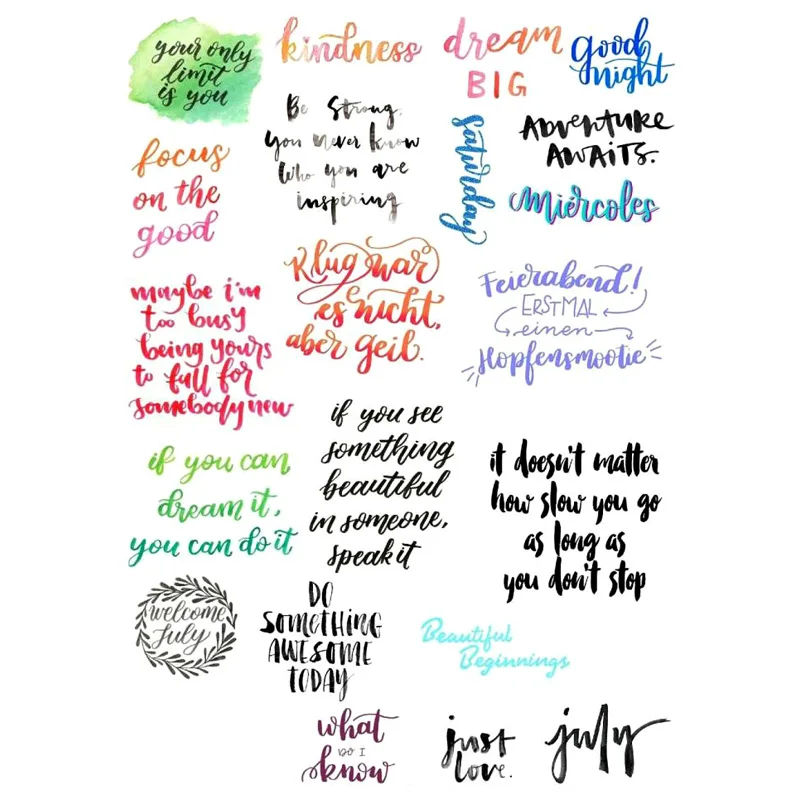 your only
limit
is you
kindness
dream
BIG
good
night
Be Strong.
You never know
Who you are
inspiring
saturday
ADVENTURE
AWAITS.
focus
on the
good
Miércoles
Klug war
es nicht,
aber geil.
Feierabend!
ERSTMAL
einen
Hopfensmootie
maybe i'm
too busy
being yours
to fall for
somebody new
if you see
something
beautiful
in someone,
speak it
if you can
dream it,
you can do it
it doesn't matter
how slow you go
as long as
you don't stop
welcome
July
DO
SOMETHING
AWESOME
TODAY
Beautiful
Beginnings
what
DO I
know
just
love.
july